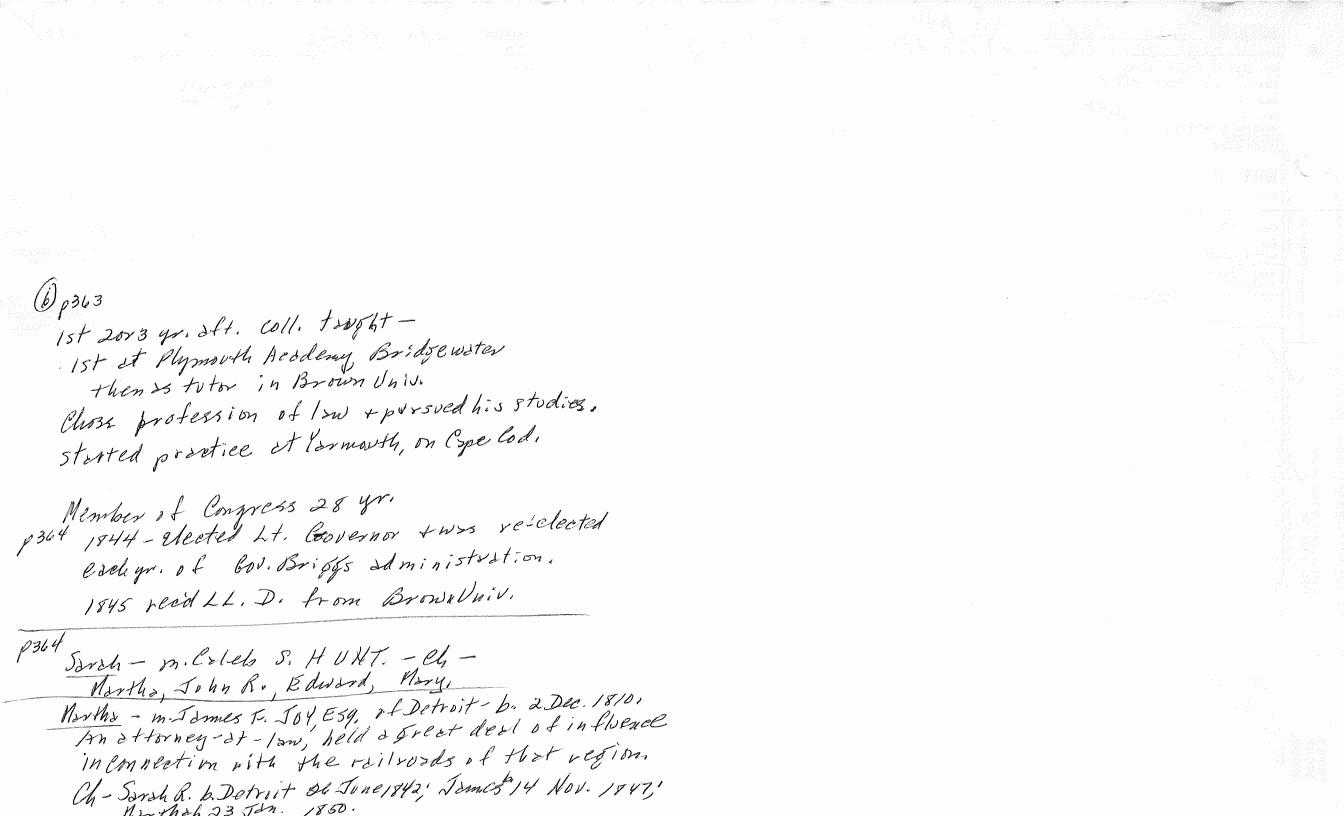 ⑥ p363
1st 2or3 yr. aft. coll. taught —
1st at Plymouth Academy, Bridgewater
then as tutor in Brown Univ.
Chose profession of law + pursued his studies.
started practice at Yarmouth, on Cape Cod.
Member of Congress 28 yr.
p364 1844 - elected Lt. Governor + was re-elected
each yr. of Gov. Briggs administration.
1845 rec'd LL. D. from Brown Univ.
p364
Sarah — m. Caleb S. HUNT. - Ch —
Martha, John R., Edward, Mary.
Martha - m. James F. JOY, Esq. of Detroit - b. 2 Dec. 1810.
An attorney-at-law, held a great deal of influence
in connection with the railroads of that region.
Ch - Sarah R. b. Detroit June 1842; James b 14 Nov. 1847;
23 Jan. 1850.